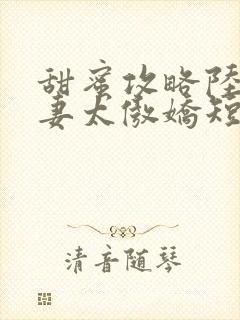 甜蜜攻略陸
妻太傲嬌短
清音随琴